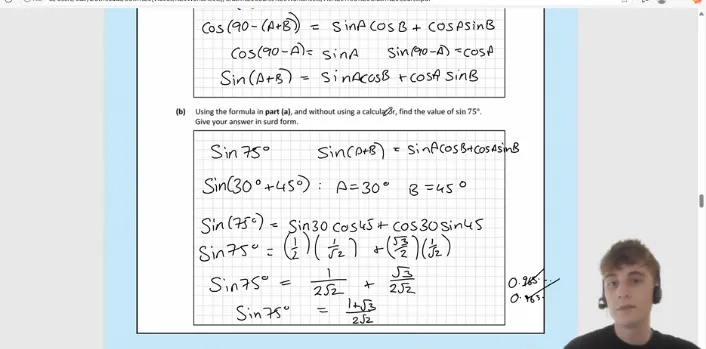 Cos(90-(A+B)) = sinA cosB + cosA sinB
Cos(90-A) = sinA Sin(90-A) = cosA
Sin(A+B) = sinAcosB + cosA sinB
(b) Using the formula in part (a), and without using a calculator, find the value of sin 75°.
Give your answer in surd form.
Sin75° Sin(A+B) = sinAcosB+cosAsinB
Sin(30°+45°) : A=30° B=45°
Sin(75°) = Sin30 cos45 + cos30 sin45
Sin75° = (1/2)(1/√2) + (√3/2)(1/√2)
Sin75° = 1/2√2 + √3/2√2
Sin75° = 1+√3/2√2